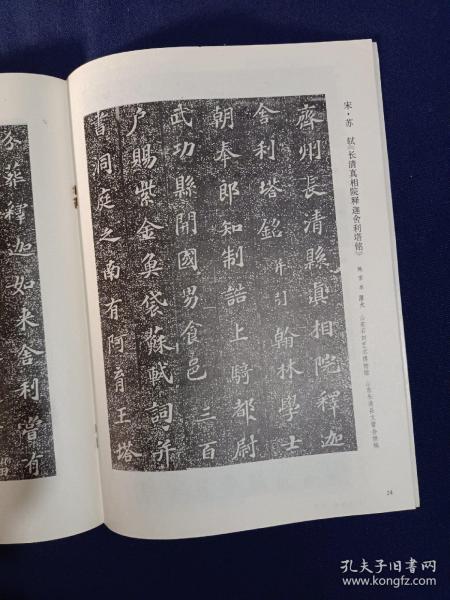 宋·苏 轼《长清真相院释迦舍利塔铭》
山东石刻艺术博物馆
齊州長清縣眞相院釋迦
舍利塔銘 并引 翰林學士
朝奉郎知制誥上騎都尉
武功縣開國男食邑 三百
户賜紫金魚袋蘇軾詞并
書洞庭之南有阿育王塔
分葬釋迦如來舍利嘗有
24
孔夫子旧书网
www.kongfz.com